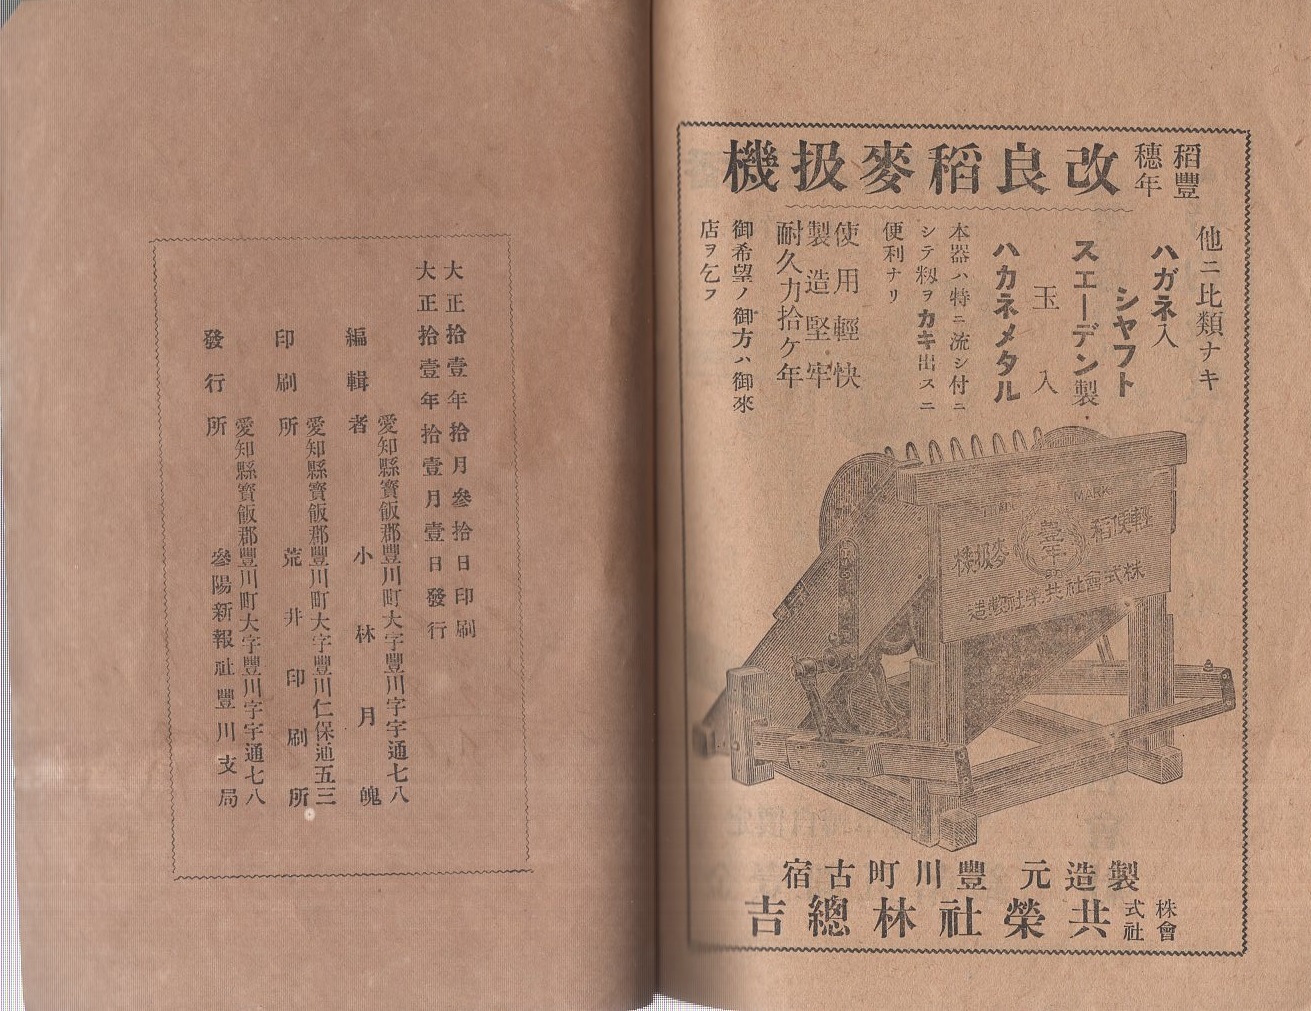 稻豐
穗年
改良稻麥扱機
他ニ比類ナキ
ハガネ入
シヤフト
スエーデン製
玉入
ハカネメタル
本器ハ特ニ流シ付ニ
シテ籾ヲカキ出スニ
便利ナリ
使用輕快
製造堅牢
耐久力拾ケ年
御希望ノ御方ハ御來
店ヲ乞フ
TRADE MARK
輕便稻麥扱機
株式會社共榮社製造
製造元 豐川町古宿
株式
會社
共榮社林總吉
大正拾壹年拾月參拾日印刷
大正拾壹年拾壹月壹日發行
愛知縣寳飯郡豐川町大字豐川字宇通七八
編輯者 小林月
愛知縣寳飯郡豐川町大字豐川仁保通五三
印刷所 荒井印刷所
愛知縣寳飯郡豐川町大字豐川字宇通七八
發行所 參陽新報社豐川支局